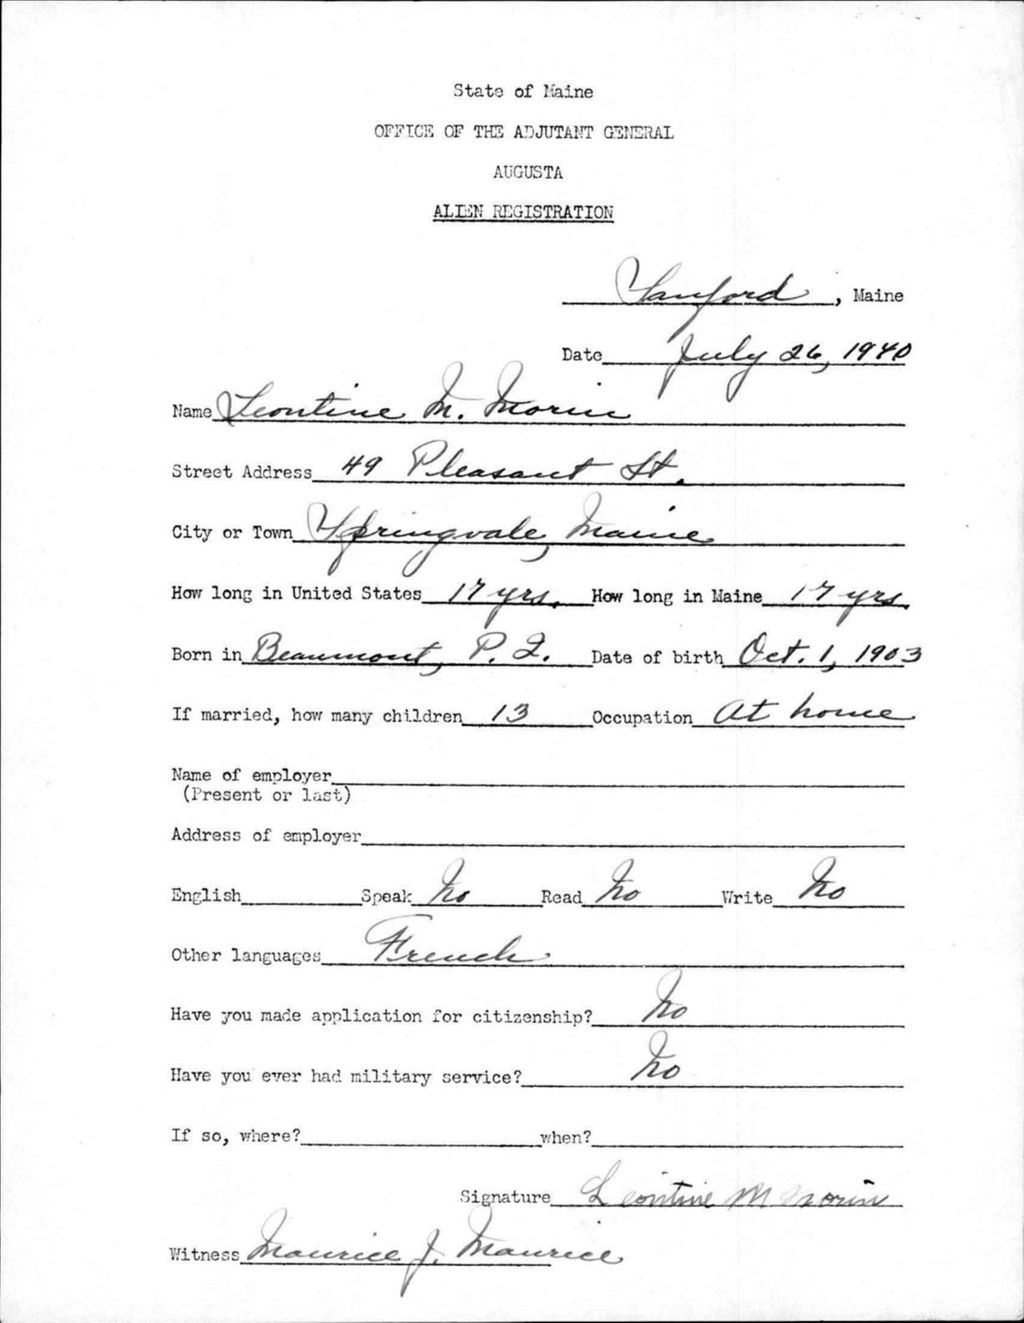 State of Maine
OFFICE OF THE ADJUTANT GENERAL
AUGUSTA
ALIEN REGISTRATION
Sanford, Maine
Date July 26, 1940
Name Leontine M. Morin
Street Address 49 Pleasant St.
City or Town Springvale, Maine
How long in United States 17 yrs. How long in Maine 17 yrs.
Born in Beaumont, P. Q. Date of birth Oct. 1, 1903
If married, how many children 13 Occupation At home
Name of employer
(Present or last)
Address of employer
English Speak No Read No Write No
Other languages French
Have you made application for citizenship? No
Have you ever had military service? No
If so, where? when?
Signature Leontine M Morin
Witness Maurice J. Maurice